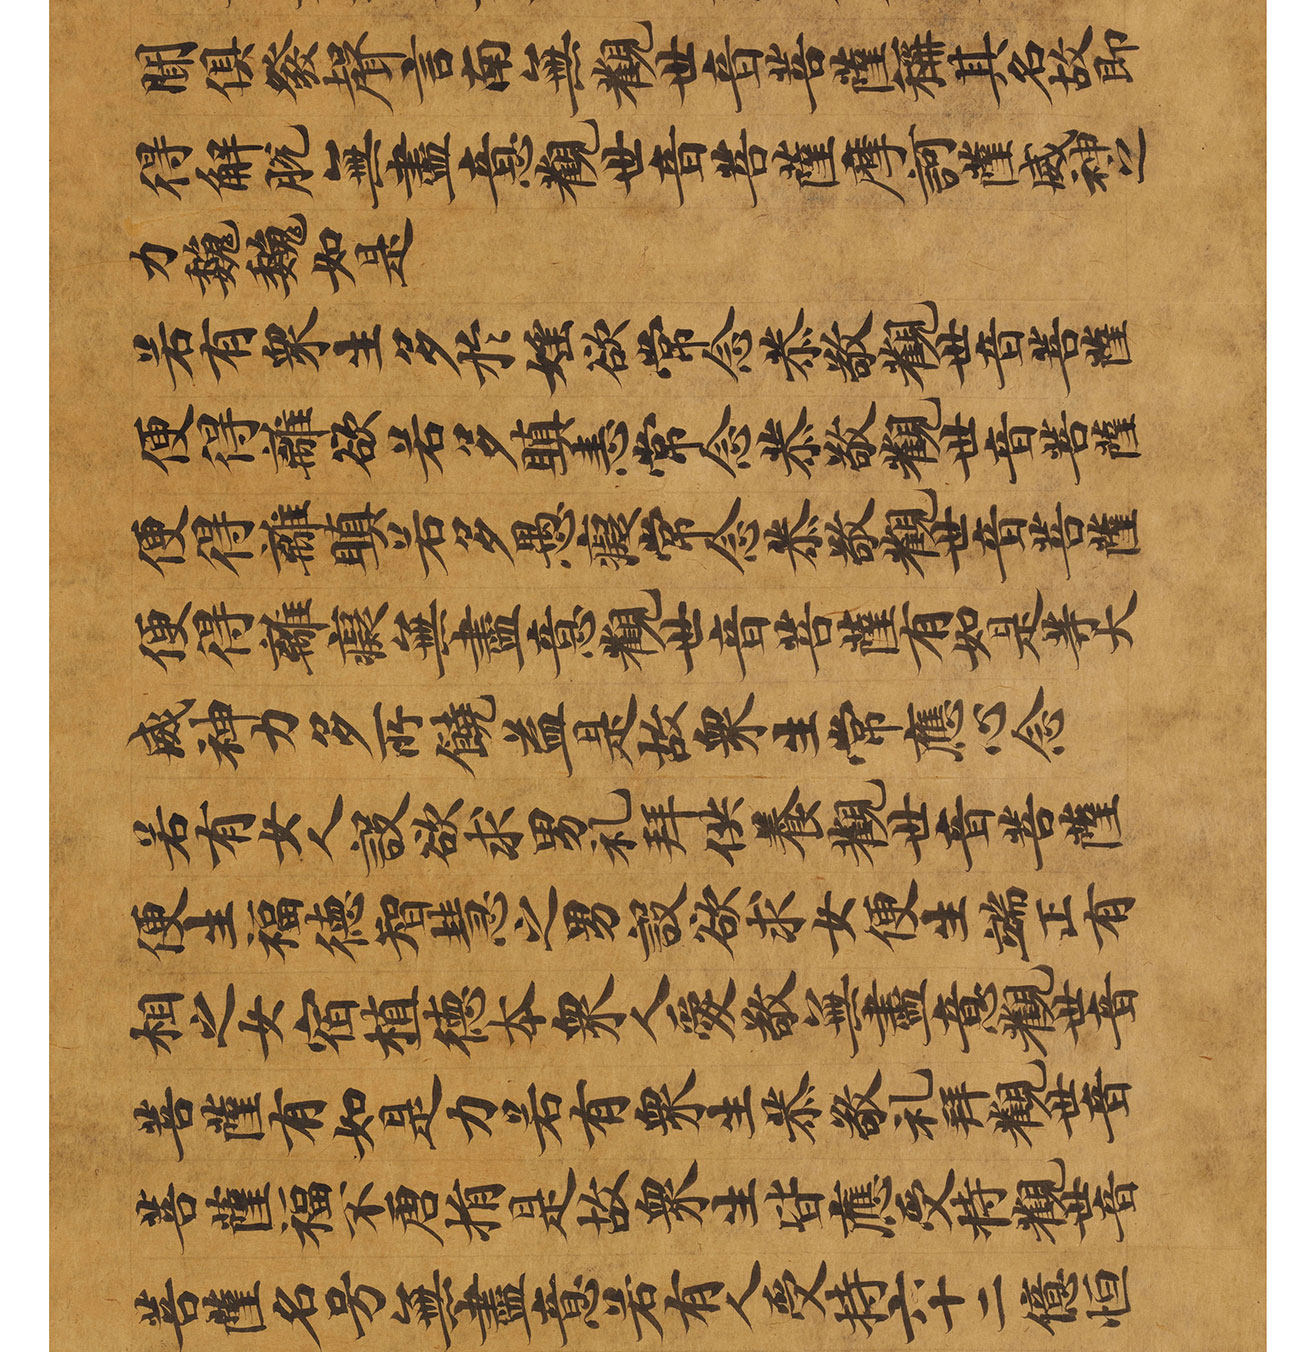 聞俱發聲言南無觀世音菩薩稱其名故即
得解脫無盡意觀世音菩薩摩訶薩威神之
力巍巍如是
若有眾生多於婬欲常念恭敬觀世音菩薩
便得離欲若多瞋恚常念恭敬觀世音菩薩
便得離瞋若多愚癡常念恭敬觀世音菩薩
便得離癡無盡意觀世音菩薩有如是等大
威神力多所饒益是故眾生常應心念
若有女人設欲求男礼拜供養觀世音菩薩
便生福德智慧之男設欲求女便生端正有
相之女宿植德本眾人愛敬無盡意觀世音
菩薩有如是力若有眾生恭敬礼拜觀世音
菩薩福不唐捐是故眾生皆應受持觀世音
菩薩名号無盡意若有人受持六十二億恒